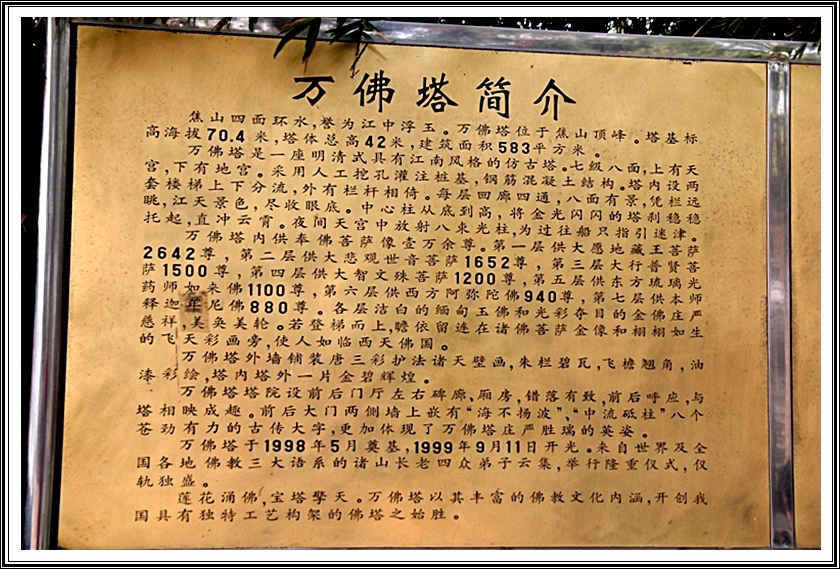 万佛塔简介
焦山四面环水,誉为江中浮玉。万佛塔位于焦山顶峰。塔基标
高海拔70.4米,塔体总高42米,建筑面积583平方米。
万佛塔是一座明清式具有江南风格的仿古塔。七级八面,上有天
宫,下有地宫。采用人工挖孔灌注桩基,钢筋混凝土结构。塔内设两
套楼梯上下分流,外有栏杆相倚。每层回廊四通,八面有景,凭栏远
眺,江天景色,尽收眼底。中心柱从底到高,将金光闪闪的塔刹稳稳
托起,直冲云霄。夜间天宫中放射八束光柱,为过往船只指引迷津。
万佛塔内供奉佛菩萨像壹万余尊。第一层供大愿地藏王菩萨
2642尊,第二层供大悲观世音菩萨1652尊,第三层大行普贤菩
萨1500尊,第四层供大智文殊菩萨1200尊,第五层供东方琉璃光
药师如来佛1100尊,第六层供西方阿弥陀佛940尊,第七层供本师
释迦年尼佛880尊。各层洁白的缅甸玉佛和光彩夺目的金佛庄严
慈祥,美奂美轮。若登梯而上,瞻依留连在诸佛菩萨金像和栩栩如生
的飞天彩画旁,使人如临西天佛国。
万佛塔外墙铺装唐三彩护法诸天壁画,朱栏碧瓦,飞檐翘角,油
漆彩绘,塔内塔外一片金碧辉煌。
万佛塔塔院设前后门厅左右碑廊、厢房,错落有致,前后呼应,与
塔相映成趣。前后大门两侧墙上嵌有“海不扬波”、“中流砥柱”八个
苍劲有力的古传大字,更加体现了万佛塔庄严胜瑞的英姿。
万佛塔于1998年5月奠基,1999年9月11日开光。来自世界及全
国各地佛教三大语系的诸山长老四众弟子云集,举行隆重仪式,仅
轨独盛。
莲花涌佛,宝塔擎天。万佛塔以其丰富的佛教文化内涵,开创我
国具有独特工艺构架的佛塔之始胜。